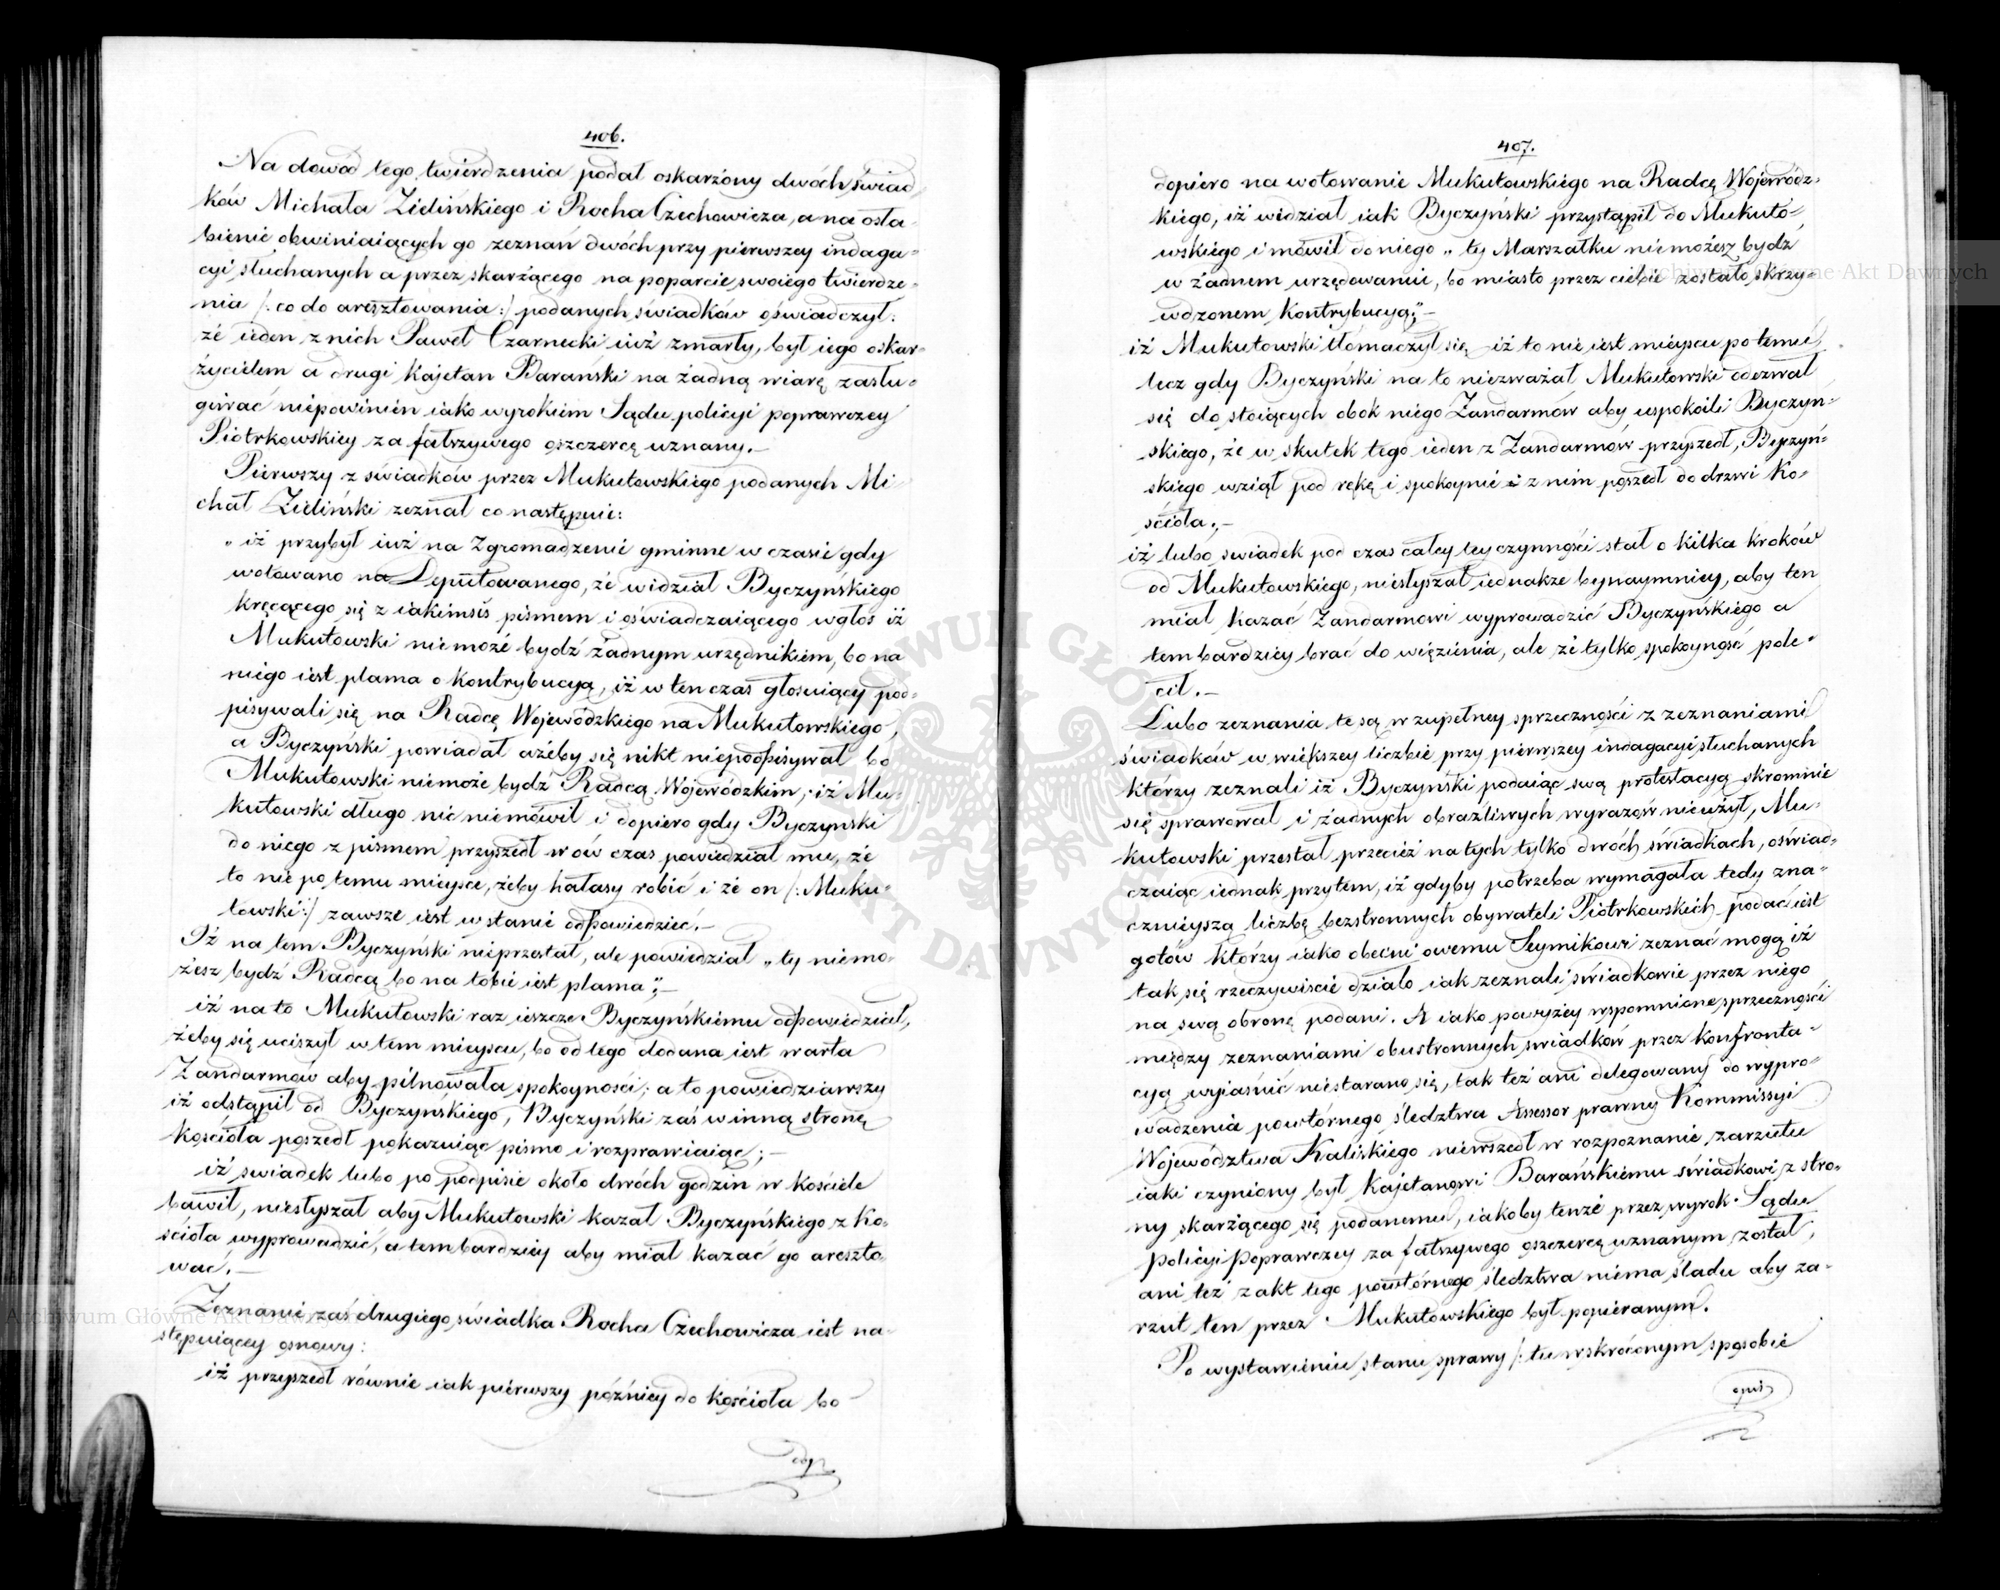 406.
Na dowód tego twierdzenia podał oskarżony dwóch świad
ków Michała Zielińskiego i Rocha Czechowicza, a na osła-
bienie obwiniaiących go zeznań dwóch przy pierwszey indaga-
cyi słuchanych a przez skarżącego na poparcie swoiego twierdze-
nia /: co do aresztowania :/ podanych świadków oświadczył:
że ieden z nich Paweł Czarnecki iuż zmarły, był iego oskar-
życielem a drugi Kajetan Baranski na żadną wiarę zasłu-
giwać niepowinien iako wyrokiem Sądu policyi poprawczey
Piotrkowskiey za fałszywego oszczercę uznany.—
Pierwszy z świadków przez Mukułowskiego podanych Mi
chał Zieliński zeznał co następuie:
„ iż przybył iuż na Zgromadzenie gminne w czasie gdy
wotowano na Deputowanego, że widział Byczyńskiego
kręcącego się z iakimsiś pismem i oświadczaiącego wgłos iż
Mukułowski niemoże bydź żadnym urzędnikiem, bo na
niego iest plama o kontrybucyą, iż w ten czas głosuiący pod-
pisywali się na Radcę Wojewódzkiego na Mukułowskiego,
a Byczyński powiadał ażeby się nikt niepodpisywał bo
Mukułowski niemoże bydź Radcą Wojewódzkim, iż Mu-
kułowski długo nic niemówił i dopiero gdy Byczynski
do niego z pismem przyszedł wów czas powiedział mu, że
to nie po temu mieysce, żeby hałasy robić i że on /: Muku-
łowski :/ zawsze iest w stanie odpowiedzieć.—
Iż na tem Byczyński nieprzestał, ale powiedział „ ty niemo-
żesz bydź Radcą bo na tobie iest plama";—
iż na to Mukułowski raz ieszcze Byczyńskiemu odpowiedział,
żeby się uciszył w tem mieyscu, bo od tego dodana iest warta
Żandarmów aby pilnowała spokoyności; a to powiedziawszy
iż odstąpił od Byczyńskiego, Byczyński zaś w inną stronę
Kościoła poszedł pokazuiąc pismo i rozprawiaiąc;—
iż swiadek lubo po podpisie około dwóch godzin w kościele
bawił, niesłyszał aby Mukułowski kazał Byczyńskiego z Ko-
ścioła wyprowadzić, a tem bardziey aby miał kazać go areszto
wać.—
Zeznanie zaś drugiego świadka Rocha Czechowicza iest na-
stępuiącey osnowy:
iż przyszedł równie iak pierwszy późniey do kościoła bo
dop
407.
dopiero na wotowanie Mukułowskiego na Radcę Wojewódz-
kiego, iż widział iak Byczyński przystąpił do Mukuło-
wskiego i mówił do niego „ ty Marszałku niemożesz bydź
w żadnem urzędowaniu, bo miasto przez ciebie zostało skrzy-
wdzonem kontrybucyą";—
iż Mukułowski tłomaczył się, iż to nie iest mieyscu po temu,
lecz gdy Byczyński na to niezważał Mukułowski odezwał
się do stoiących obok niego Żandarmów aby uspokoili Byczyń-
skiego, że w skutek tego ieden z Żandarmów przyszedł, Byczyń-
skiego wziął pod rękę i spokoynie z nim poszedł do drzwi Ko-
ścioła.—
iż lubo swiadek pod czas całey tey czynności stał o kilka kroków
od Mukułowskiego, niesłyszał iednakże bynaymniey, aby ten
miał kazać Żandarmowi wyprowadzić Byczyńskiego a
tem bardziey brać do więzienia, ale że tylko spokoyność pole-
cił.—
Lubo zeznania te są w zupełney sprzeczności z zeznaniami
świadków w większey liczbie przy pierwszey indagacyi słuchanych
którzy zeznali iż Byczyński podaiąc swą protestacyą skromnie
się sprawował i żadnych obraźliwych wyrazów nieużył, Mu-
kułowski przestał przecież na tych tylko dwóch świadkach, oświad-
czaiąc iednak przytem, iż gdyby potrzeba wymagała tedy zna-
cznieyszą liczbę bezstronnych obywateli Piotrkowskich podać iest
gotów którzy iako obecni owemu Seymikowi zeznać mogą iż
tak się rzeczywiście działo iak zeznali świadkowie przez niego
na swą obronę podani. A iako powyżey wspomnione sprzeczności
między zeznaniami obustronnych świadków przez konfronta-
cyą wyiaśnić niestarano się, tak też ani delegowany do wypro-
wadzenia powtórnego śledztwa Assessor prawny Kommissyi
Województwa Kaliskiego niewszedł w rozpoznanie zarzutu
iaki czyniony był Kajetanowi Barańskiemu świadkowi z stro-
ny skarżącego się podanemu, iakoby tenże przez wyrok Sądu
Policyi Poprawczey za fałszywego oszczercę uznanym został,
ani też z akt tego powtórnego śledztwa niema śladu aby za-
rzut ten przez Mukułowskiego był popieranym.
Po wystawieniu stanu sprawy /: tu w skróconym sposobie
opis
Archiwum Główne Akt Dawnych
Archiwum Główne Akt Dawnych
ARCHIWUM GŁÓWNE AKT DAWNYCH